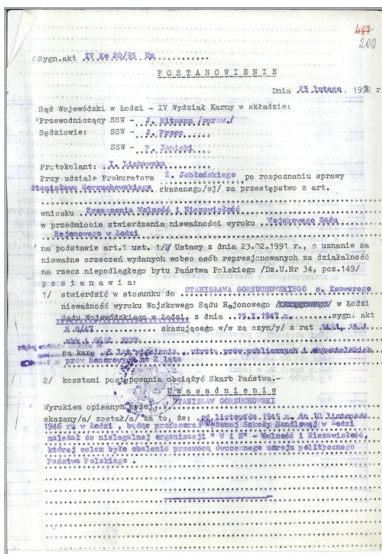 487
200
Sygn.akt IV Ko 20/93 Un
POSTANOWIENIE
Dnia 25 lutego 1993 r
Sąd Wojewódzki w Łodzi - IV Wydział Karny w składzie:
Przewodniczący SSW - J. Ritmann /spraw./
Sędziowie: SSW - J. Prass
SSW - P. Janicki
Protokolant: I. Lichowska
Przy udziale Prokuratora Z. Jabłońskiego po rozpoznaniu sprawy
Stanisława Gorzuchowskiego skazanego/ej/ za przestępstwo z art.
wniosku Zrzeszenia Wolność i Niezawisłość
w przedmiocie stwierdzenia nieważności wyroku Wojskowego Sądu
Rejonowego w Łodzi
na podstawie art.1 ust. 1/ Ustawy z dnia 23.02.1991 r., o uznanie za
nieważne orzeczeń wydanych wobec osób represjonowanych za działalność
na rzecz niepodległego bytu Państwa Polskiego /Dz.U.Nr 34, poz.149/
postanawia:
1/ stwierdzić w stosunku do STANISŁAWA GORZUCHOWSKIEGO s. Kazimierza
nieważność wyroku Wojskowego Sądu Rejonowego /Okręgowego/ w Łodzi
Sądu Wojewódzkiego w Łodzi z dnia 15.I.1947 r. sygn. akt
R 8/47 skazującego w/w za czyn/y/ z
na karę 5 lat więzienia utratę praw publicznych i obywatelskich
praw honorowych na 2 lata
2/ kosztami postępowania obciążyć Skarb Państwa.-
Uzasadnienie
Wyrokiem opisanym wyżej STANISŁAW GORZUCHOWSKI
skazany/a/ został/a/ za to, że: od listopada 1945 r. do 10 listopada
1946 r. w Łodzi, będąc profesorem Szkoły Handlowej w Łodzi
należał do nielegalnej organizacji "W i N" - Wolność i Niezawisłość,
której celem było obalenie przemocą ówczesnego ustroju politycznego
Państwa Polskiego.